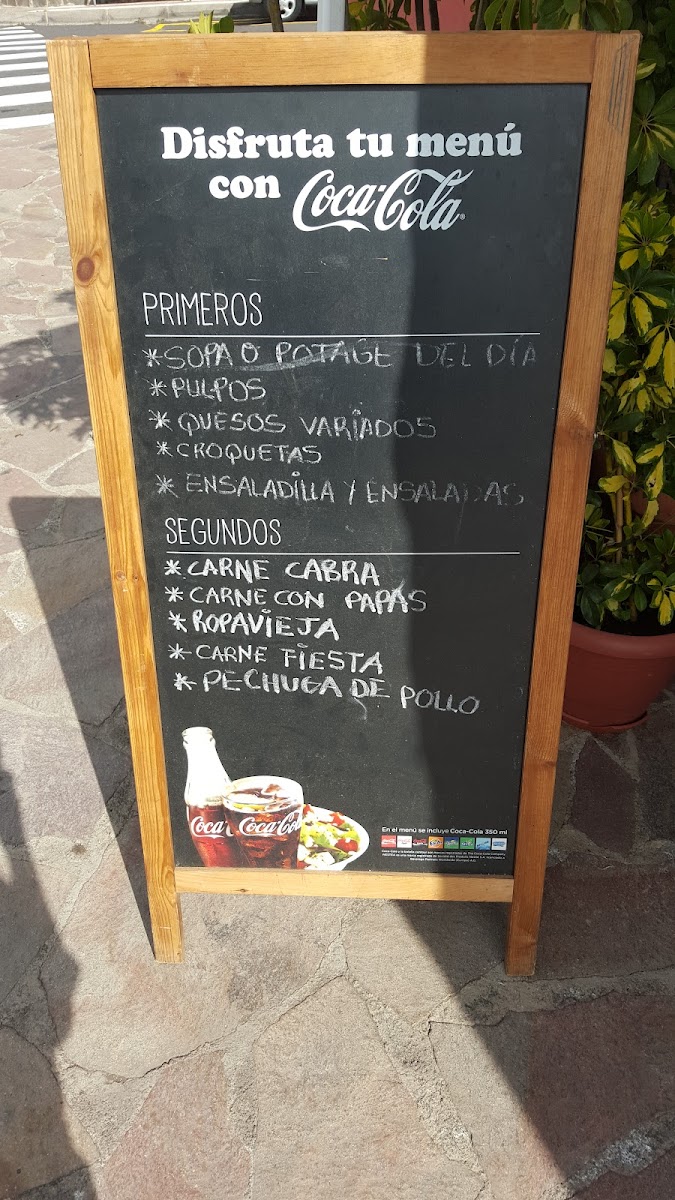 Disfruta tu menú
con Coca-Cola®
PRIMEROS
*SOPA O POTAGE DEL DÍA
*PULPOS
*QUESOS VARIADOS
*CROQUETAS
*ENSALADILLA Y ENSALADAS
SEGUNDOS
*CARNE CABRA
*CARNE CON PAPAS
*ROPAVIEJA
*CARNE FIESTA
*PECHUGA DE POLLO
Coca-Cola
En el menú se incluye Coca-Cola 350 ml